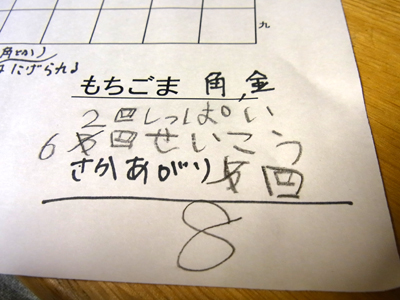 九
にげられる
もちごま 角、金
2回しっぱい
6回せいこう
さかあがり 回
8